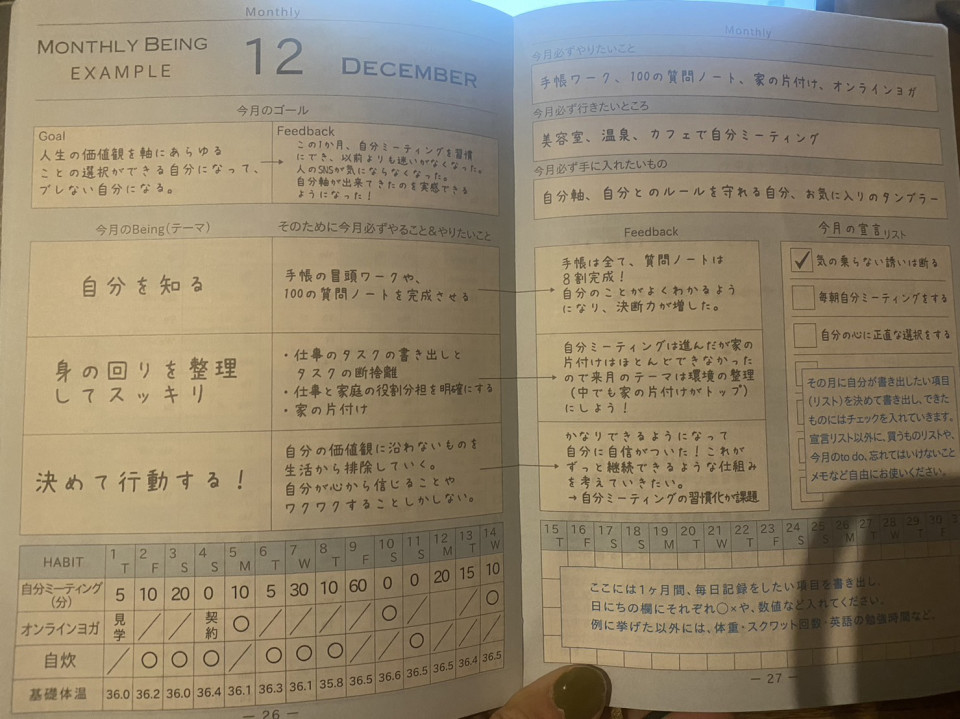 Monthly
MONTHLY BEING
EXAMPLE
12
DECEMBER
今月のゴール
Goal
人生の価値観を軸にあらゆる
ことの選択ができる自分になって、
ブレない自分になる。
Feedback
この1か月、自分ミーティングを習慣
にでき、以前よりも迷いがなくなった。
人のSNSが気にならなくなった。
自分軸が出来てきたのを実感できる
ようになった！
今月のBeing(テーマ)
そのために今月必ずやること&やりたいこと
自分を知る
手帳の冒頭ワークや、
100の質問ノートを完成させる
身の回りを整理
してスッキリ
・仕事のタスクの書き出しと
タスクの断捨離
・仕事と家庭の役割分担を明確にする
・家の片付け
決めて行動する！
自分の価値観に沿わないものを
生活から排除していく。
自分が心から信じることや
ワクワクすることしかしない。
HABIT 1 T 2 F 3 S 4 S 5 M 6 T 7 W 8 T 9 F 10 S 11 S 12 M 13 T 14 W
自分ミーティング(分) 5 10 20 0 10 5 30 10 60 0 0 20 15 10
オンラインヨガ 見学 ／ ／ 契約 ○ ／ ／ ／ ／ ○ ／ ／ ／ ○
自炊 ／ ○ ○ ○ ／ ○ ○ ○ ／ ／ ○ ／ ／ ／
基礎体温 36.0 36.2 36.0 36.4 36.1 36.3 36.1 35.8 36.5 36.6 36.5 36.5 36.4 36.5
— 26 —
Monthly
今月必ずやりたいこと
手帳ワーク、100の質問ノート、家の片付け、オンラインヨガ
今月必ず行きたいところ
美容室、温泉、カフェで自分ミーティング
今月必ず手に入れたいもの
自分軸、自分とのルールを守れる自分、お気に入りのタンブラー
Feedback
手帳は全て、質問ノートは
8割完成！
自分のことがよくわかるよう
になり、決断力が増した。
自分ミーティングは進んだが家の
片付けはほとんどできなかった
ので来月のテーマは環境の整理
(中でも家の片付けがトップ)
にしよう！
かなりできるようになって
自分に自信がついた！これが
ずっと継続できるような仕組み
を考えていきたい。
→自分ミーティングの習慣化が課題
今月の宣言リスト
✓ 気の乗らない誘いは断る
毎朝自分ミーティングをする
自分の心に正直な選択をする
その月に自分が書き出したい項目
(リスト)を決めて書き出し、できた
ものにはチェックを入れていきます。
宣言リスト以外に、買うものリストや、
今月のto do、忘れてはいけないこと
メモなど自由にお使いください。
15 T 16 F 17 S 18 S 19 M 20 T 21 W 22 T 23 F 24 S 25 S 26 M 27 T 28 W 29 T 30 F
ここには1ヶ月間、毎日記録をしたい項目を書き出し、
日にちの欄にそれぞれ○×や、数値など入れてください。
例に挙げた以外には、体重・スクワット回数・英語の勉強時間など。
— 27 —